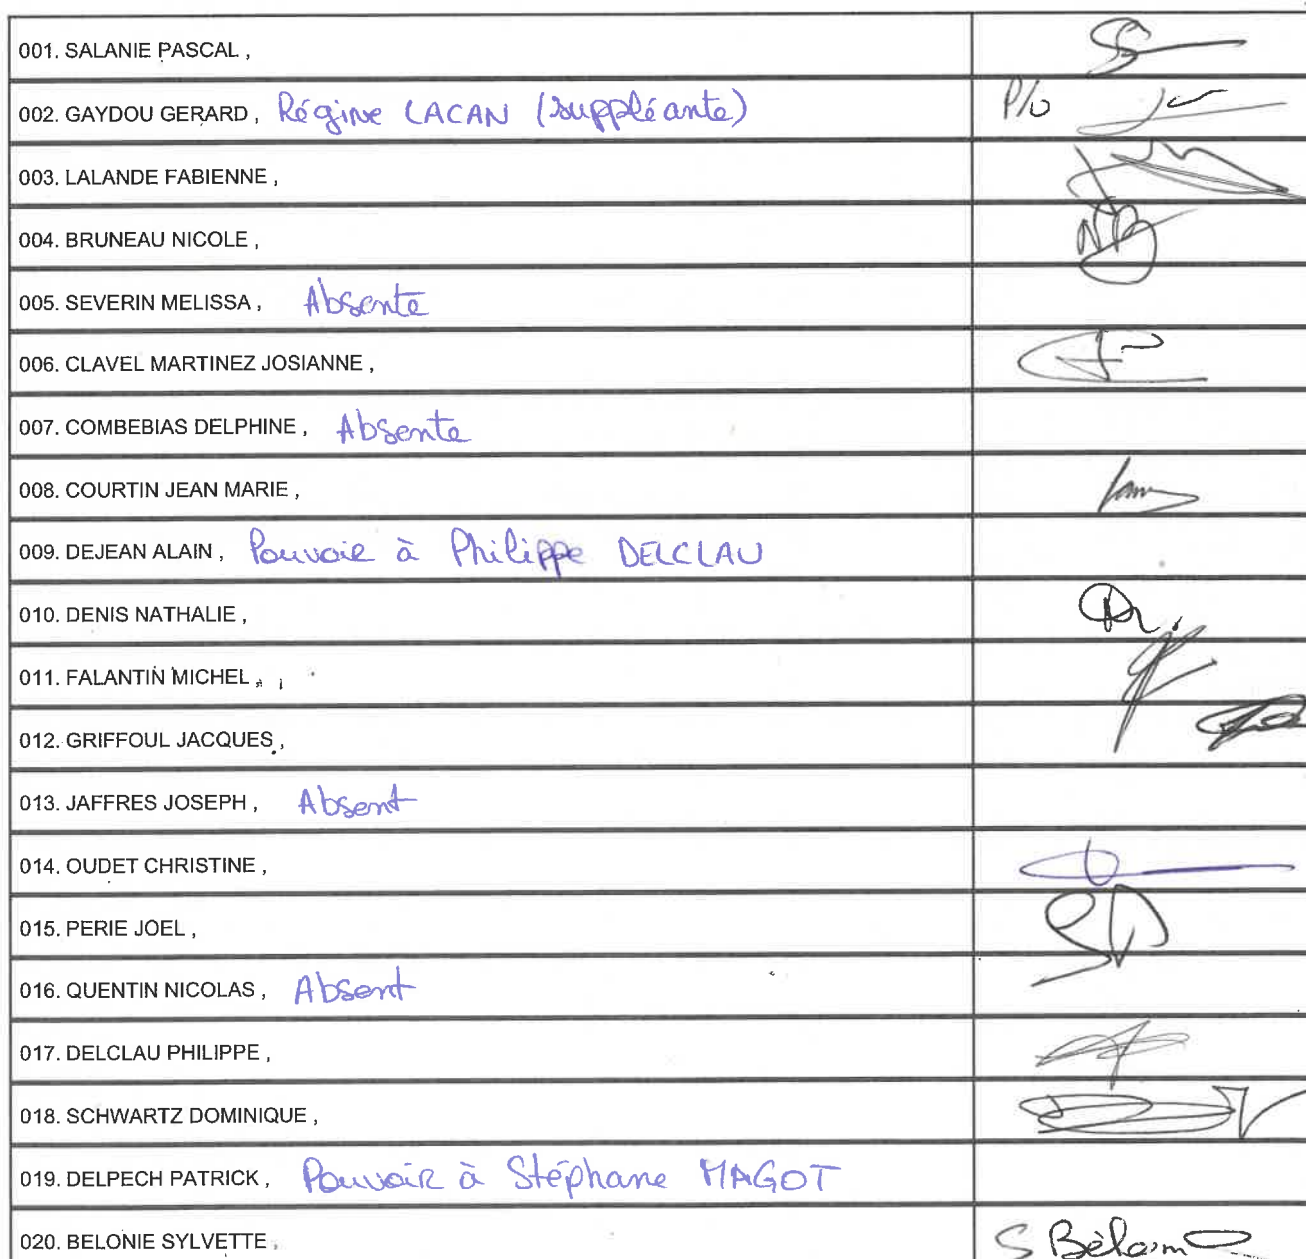 001. SALANIE PASCAL ,
002. GAYDOU GERARD , Régine LACAN (suppléante) P/o
003. LALANDE FABIENNE ,
004. BRUNEAU NICOLE , NB
005. SEVERIN MELISSA , Absente
006. CLAVEL MARTINEZ JOSIANNE ,
007. COMBEBIAS DELPHINE , Absente
008. COURTIN JEAN MARIE ,
009. DEJEAN ALAIN , Pouvoir à Philippe DELCLAU
010. DENIS NATHALIE ,
011. FALANTIN MICHEL ,
012. GRIFFOUL JACQUES ,
013. JAFFRES JOSEPH , Absent
014. OUDET CHRISTINE ,
015. PERIE JOEL ,
016. QUENTIN NICOLAS , Absent
017. DELCLAU PHILIPPE ,
018. SCHWARTZ DOMINIQUE ,
019. DELPECH PATRICK , Pouvoir à Stéphane MAGOT
020. BELONIE SYLVETTE ,